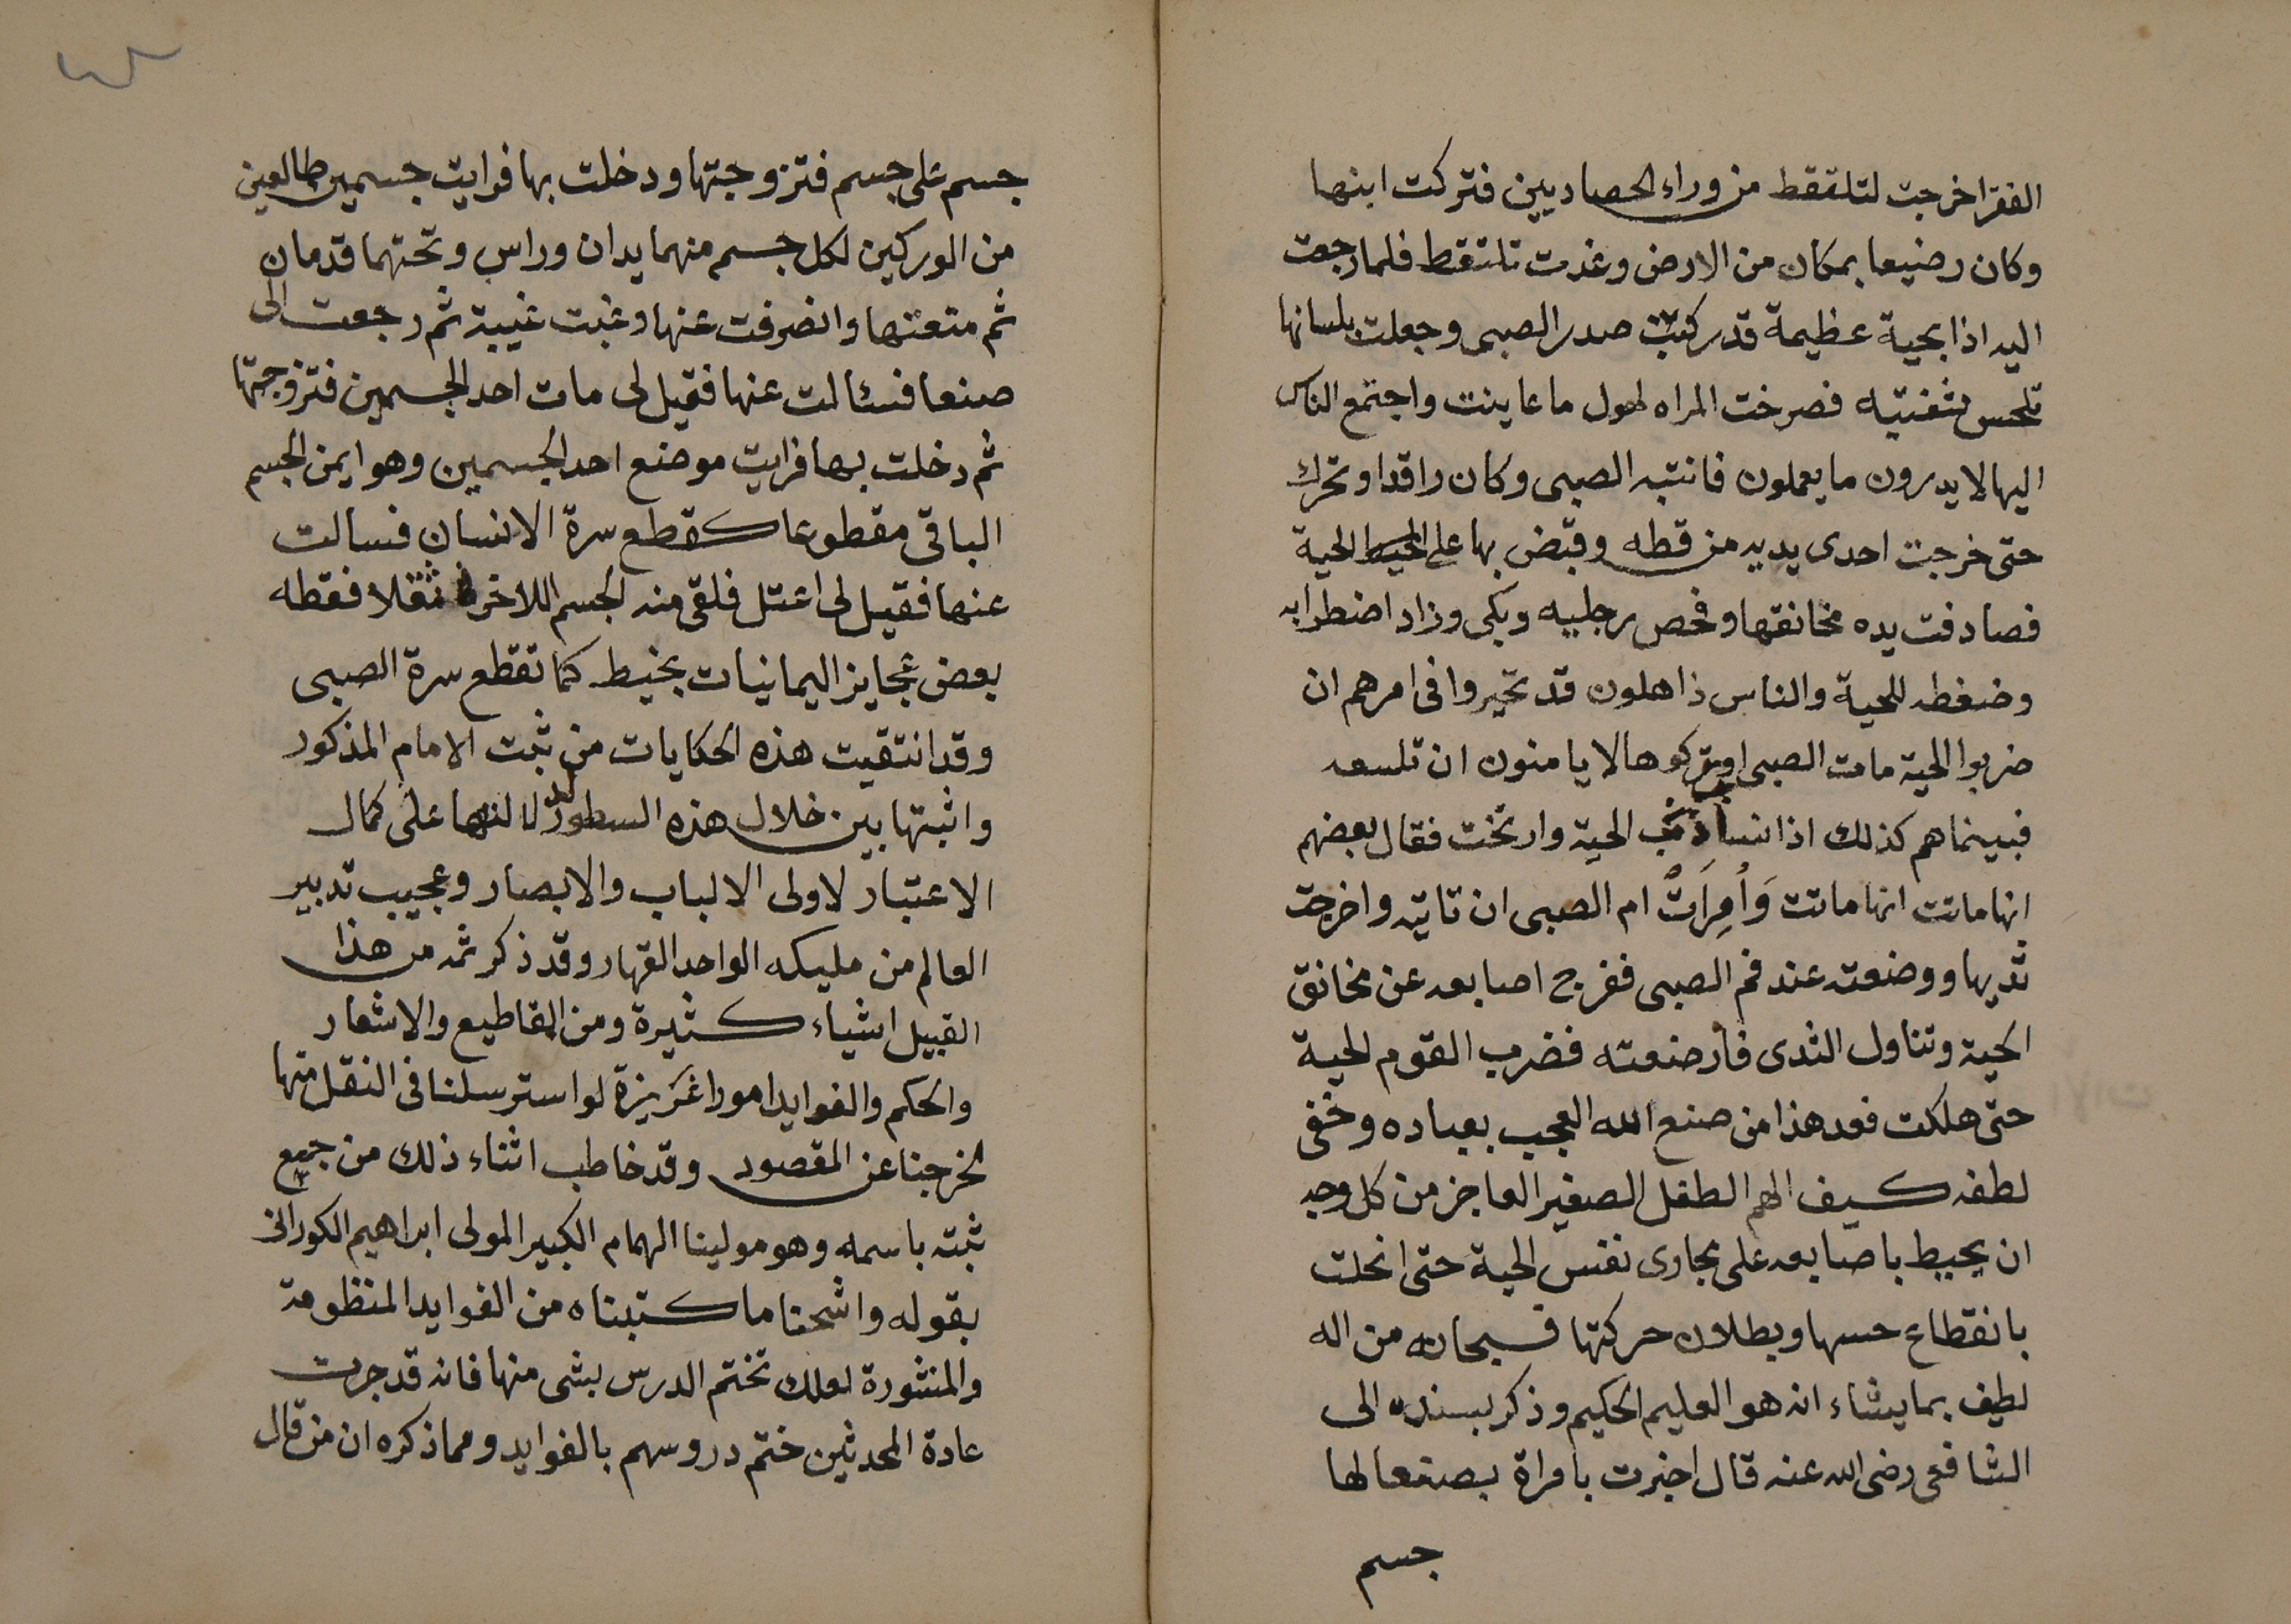 الفقرا خرجت لتلتقط من وراء الحصاديين فتركت ابنها
وكان رضيعا بمكان من الارض وغدت تلتقط فلما رجعت
اليه اذا بحية عظيمة قد ركبت صدر الصبي وجعلت بلسانها
تلحس شفتيه فصرخت المراه لهول ما عاينت واجتمع الناس
اليها لا يدرون ما يعملون فانتبه الصبي وكان راقدا وتحرك
حتى خرجت احدى يديه من قطه وقبض بها على الحية
فصادفت يده مخانقها وفحص رجليه وبكى وزاد اضطرابه
وضغطه للحية والناس ذاهلون قد تحيروا في امرهم ان
ضربوا الحية مات الصبي او تركوها لا يامنون ان تلسعه
فبينما هم كذلك اذا ذنب الحية وارتخت فقال بعضهم
انها ماتت انها ماتت وَأُمِرَتْ ام الصبي ان تاتيه واخرجت
ثديها ووضعته عند فم الصبي ففرج اصابعه عن مخانق
الحية وتناول الثدى فارضعته فضرب القوم الحية
حتى هلكت فعد هذا من صنع الله العجيب بعباده وخفى
لطفه كيف الهم الطفل الصغير العاجز من كل وجه
ان يحيط باصابعه على مجارى نفس الحية حتى انحلت
بانقطاع حسها وبطلان حركتها فسبحانه من اله
لطيف بما يشاء انه هو العليم الحكيم وذكر بسنده الى
الشافعي رضى الله عنه قال اخبرت بامراة بصنعا لها
جسم
جسم على جسم فتزوجتها ودخلت بها فرايت جسمين طالعين
من الوركين لكل جسم منهما يدان وراس وتحتهما قدمان
ثم متعتها وانصرفت عنها وغبت غيبة ثم رجعت الى
صنعا فسئالت عنها فقيل لى مات احد الجسمين فتزوجتها
ثم دخلت بها فرايت موضع احد الجسمين وهو ايمن الجسم
الباقي مقطوعا كقطع سرة الانسان فسالت
عنها فقيل لى اعتل فلقى منه الجسم اللاخر ثقلا فقطه
بعض عجايز اليمانيات بخيط كما تقطع سرة الصبي
وقد انتقيت هذه الحكايات من ثبت الامام المذكور
واثبتها بين خلال هذه السطور على كمال
الاعتبار لاولى الالباب والابصار وعجيب تدبير
العالم من مليكه الواحد القهار وقد ذكر ثمه من هذا
القبيل اشياء كثيرة ومن المقاطيع والاشعار
والحكم والفوايد امورا غَزيزة لو استرسلنا في النقل منها
لخرجنا عن المقصود وقد خاطب اثناء ذلك من جميع
ثبته باسمه وهو مولينا الهمام الكبير المولى ابراهيم الكورانى
بقوله واشحنا ما كتبناه من الفوايد المنظومة
والمنثورة لعلك تختم الدرس بشى منها فانه قد جرت
عادة المحدثين ختم دروسهم بالفوايد ومما ذكره ان من قال